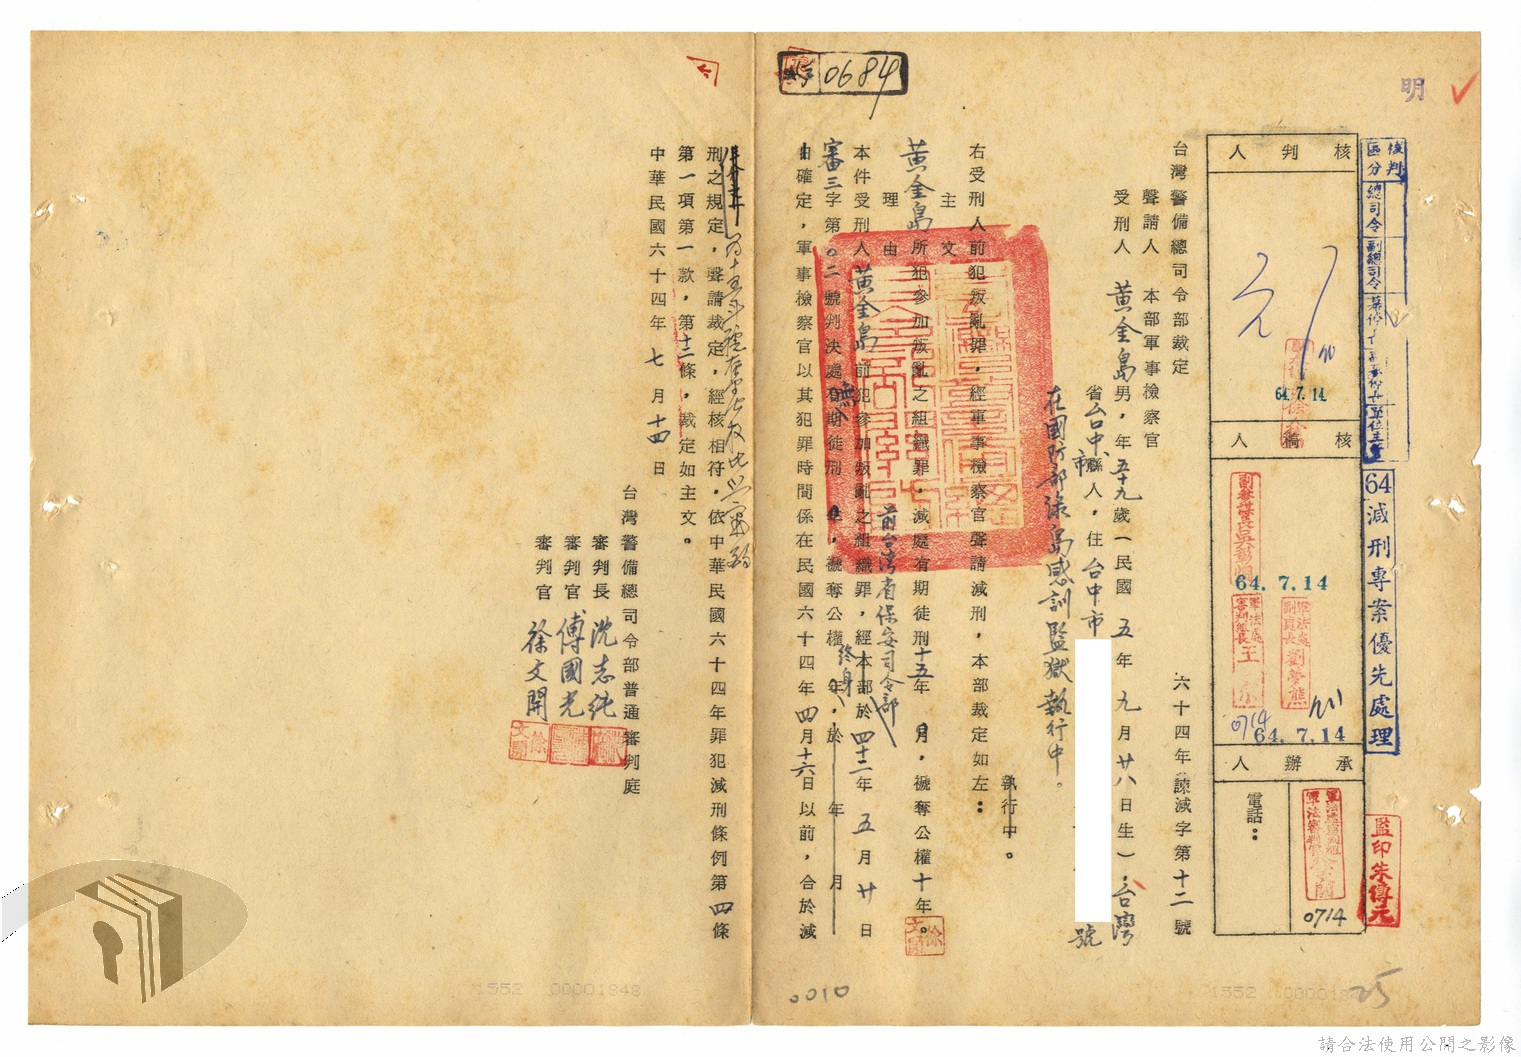 0684
明
核判區分
總司令
副總司令
單位主官
64減刑專案優先處理
監印朱傳元
核判人
64.7.14
核稿人
64.7.14
0714
64.7.14
承辦人
電話：
0714
台灣警備總司令部裁定
六十四年諫減字第十二號
聲請人 本部軍事檢察官
受刑人 黃金島男，年五十九歲（民國 五年 九月廿八日生），台灣
省台中市縣人，住台中市
號
在國防部綠島感訓監獄執行中。
執行中。
右受刑人前犯叛亂罪，經軍事檢察官聲請減刑，本部裁定如左：
主文
黃金島所犯參加叛亂之組織罪，減處有期徒刑十五年 月，褫奪公權十年。
理由
前台灣省保安司令部
本件受刑人黃金島前犯參加叛亂之組織罪，經本部於四十二年 五月 廿日
審三字第○二號判決處無期徒刑 年，褫奪公權終身 年，於 年 月
自確定，軍事檢察官以其犯罪時間係在民國六十四年四月十六日以前，合於減
刑之規定，聲請裁定，經核相符，依中華民國六十四年罪犯減刑條例第四條
第一項第一款，第十二條，裁定如主文。
中華民國六十四年 七 月 十四 日
台灣警備總司令部普通審判庭
審判長 沈志純
審判官 傅國光
審判官 徐文開
徐文開
0010
25
1552 00001848
1552
請合法使用公開之影像